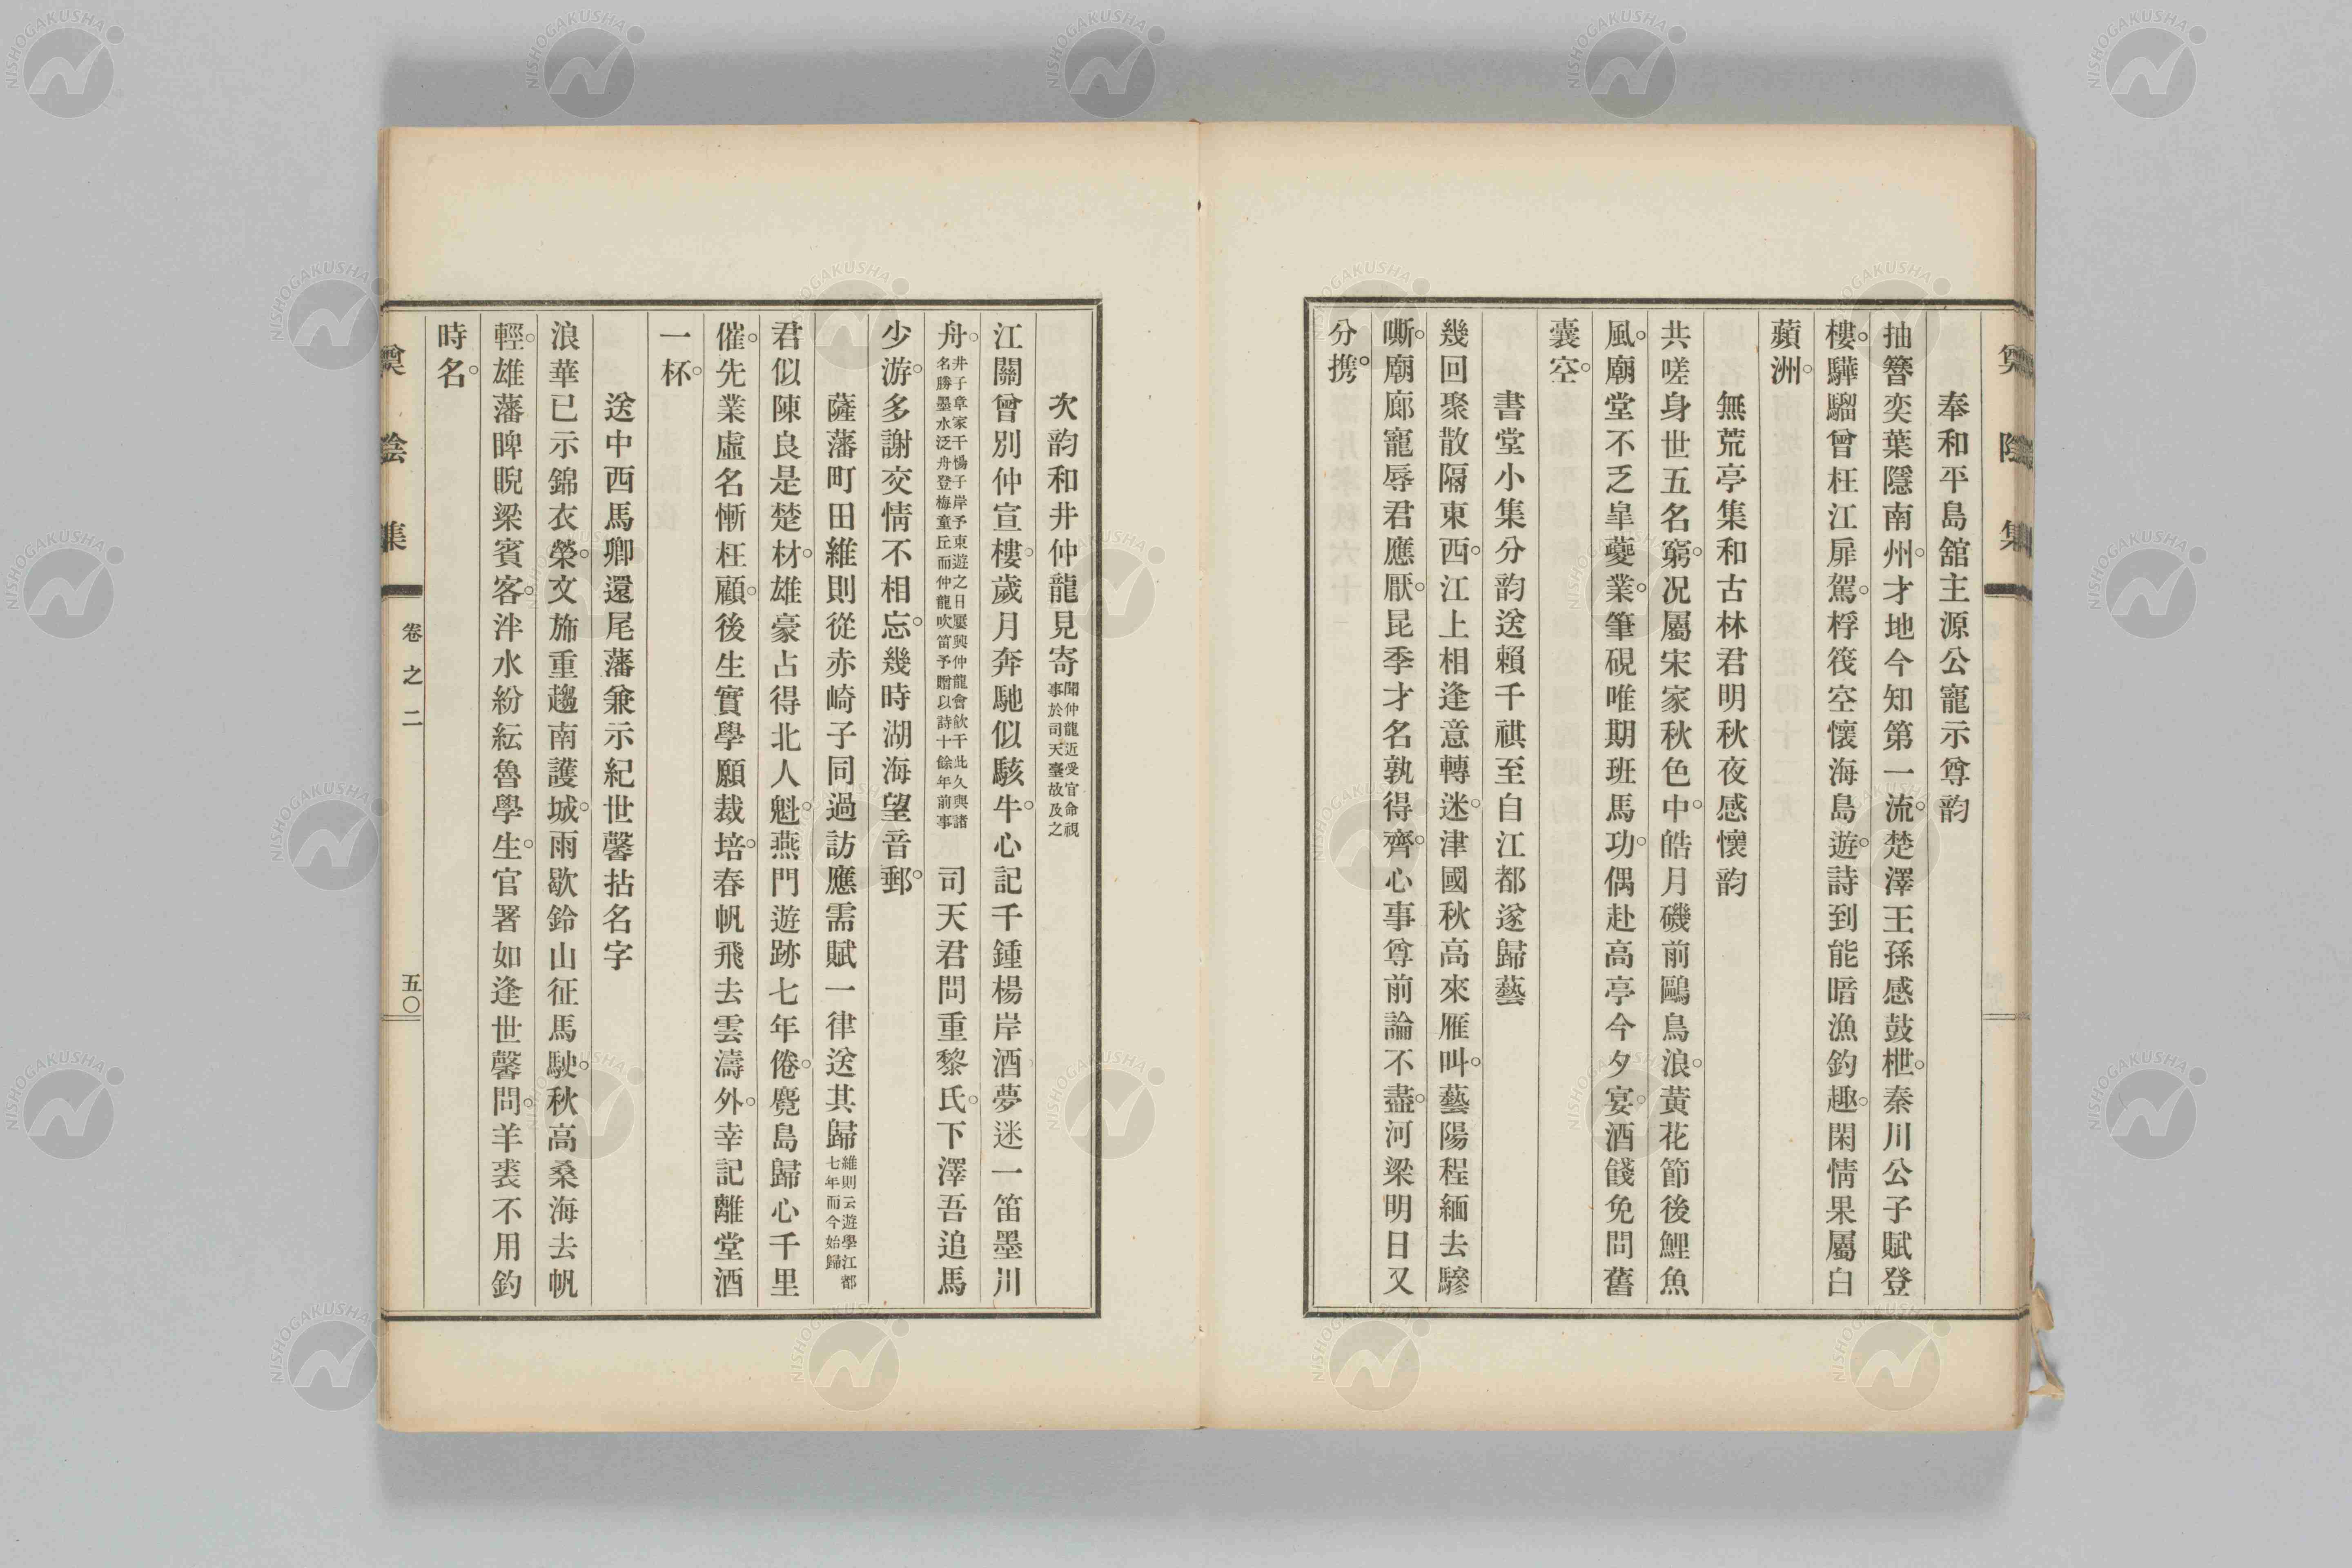 奠陰集
奉和平島舘主源公寵示尊韵
抽簪奕葉隱南州。才地今知第一流。楚澤王孫感鼓枻。秦川公子賦登
樓。驊騮曾枉江扉駕。桴筏空懷海島遊。詩到能暗漁釣趣。閑情果屬白
蘋洲。
無荒亭集和古林君明秋夜感懷韵
共嗟身世五名窮。况屬宋家秋色中。皓月磯前鷗鳥浪。黃花節後鯉魚
風。廟堂不乏皐夔業。筆硯唯期班馬功。偶赴高亭今夕宴。酒餞免問舊
囊空。
書堂小集分韵送賴千祺至自江都遂歸藝
幾回聚散隔東西。江上相逢意轉迷。津國秋高來雁叫。藝陽程緬去驂
嘶。廟廊寵辱君應厭。昆季才名孰得齊。心事尊前論不盡。河梁明日又
分携。
次韵和井仲龍見寄 聞仲龍近受官命視事於司天臺故及之
江關曾別仲宣樓。歲月奔馳似駭牛。心記千鍾楊岸酒。夢迷一笛墨川
舟。井子章家干楊子岸予東遊之日屢與仲龍會飲干此久與諸名勝墨水泛舟登梅童丘而仲龍吹笛予贈以詩十餘年前事 司天君問重黎氏。下澤吾追馬
少游。多謝交情不相忘。幾時湖海望音郵。
薩藩町田維則從赤崎子同過訪應需賦一律送其歸 維則云遊學江都七年而今始歸
君似陳良是楚材。雄豪占得北人魁。燕門遊跡七年倦。麑島歸心千里
催。先業虛名慚枉顧。後生實學願裁培。春帆飛去雲濤外。幸記離堂酒
一杯。
送中西馬卿還尾藩兼示紀世馨拈名字
浪華已示錦衣榮。文斾重趨南護城。雨歇鈴山征馬駛。秋高桑海去帆
輕。雄藩睥睨梁賓客。泮水紛紜魯學生。官署如逢世馨問。羊裘不用釣
時名。
奠陰集
卷之二
五〇